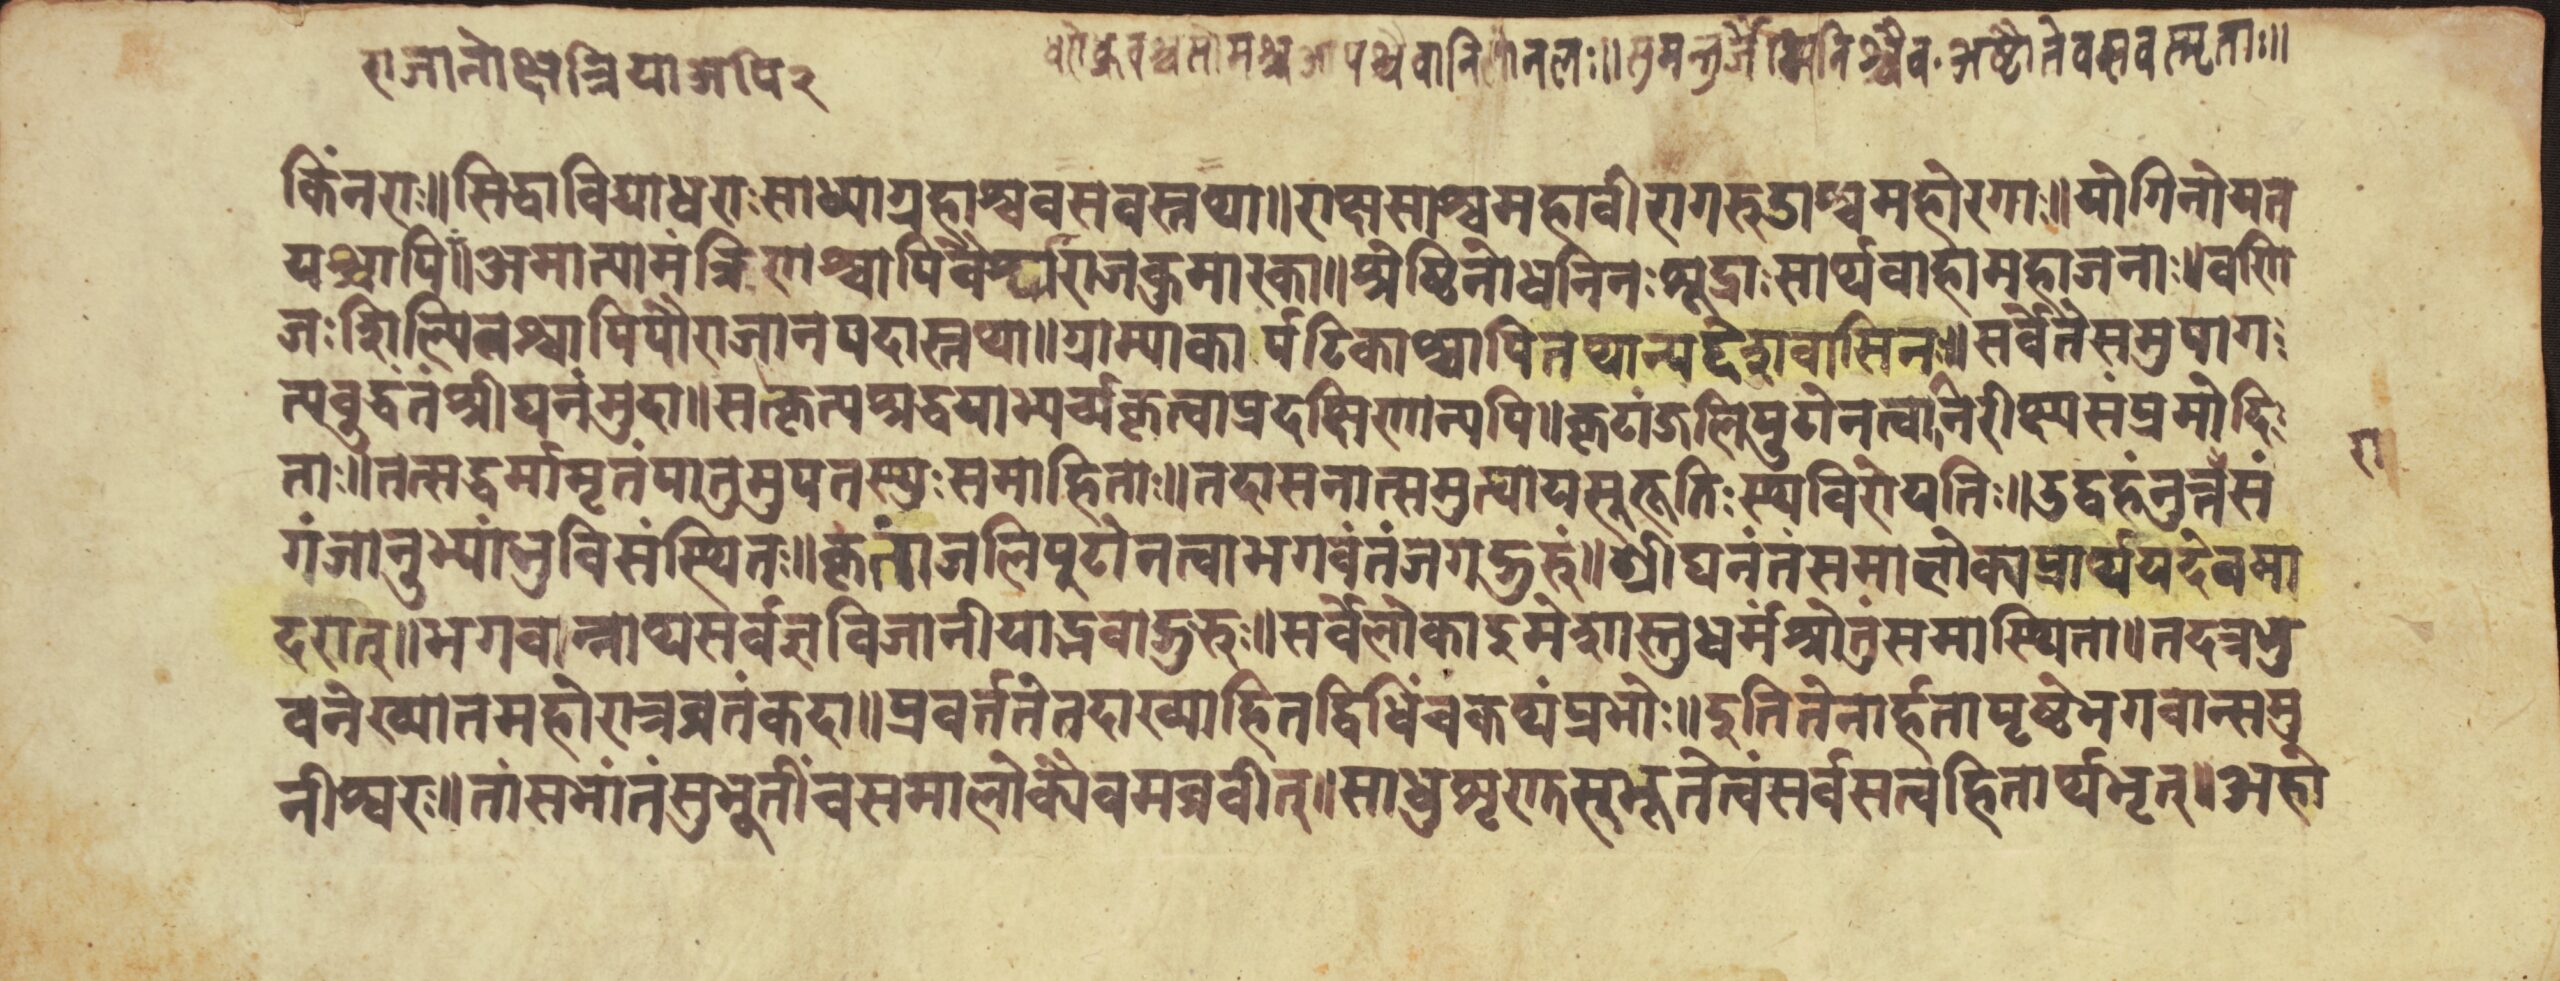 राजानोक्षत्रियाअपि२
धरोध्रुवश्चसोमश्चआपश्चैवानिलोनलः॥ अष्टौतेवसवस्मृताः॥
किंनराः॥सिद्धाविद्याधराःसाध्याग्रहाश्चवसवस्तथा॥राक्षसाश्चमहावीरागरुडाश्चमहोरगाः॥योगिनोयत
यश्चापि॥अमात्यामंत्रिणश्चापिवैश्याराजकुमारका॥श्रेष्ठिनोधनिनःशूद्राःसार्थवाहामहाजनाः॥वणि
जःशिल्पिनश्चापिपौराजानपदास्तथा॥ग्राम्याकार्पटिकाश्चापितथान्यर्द्देशवासिनः॥सर्वेतेसमुपाग
त्यबुद्धंतंश्रीघनंमुदा॥सत्कृत्यश्रद्धयाभ्यर्च्यकृत्वाप्रदक्षिणान्यपि॥कृटांजलिपुटोनत्वानिरीक्ष्यसंप्रमोदि
ताः॥तत्सद्धर्मामृतंपातुमुपतस्थुःसमाहिताः॥तदासनात्समुत्थायसूभूतिःस्थविरोयतिः॥उद्वहंनुत्तसं
रा
गंजानुभ्यांभुविसंस्थितः॥कृतांजलिपुटोनत्वाभगवंतंजगद्गुरुं॥श्रीघनंतंसमालोक्यप्रार्थयदेवमा
दरात्॥भगवान्नाथसर्वज्ञविजानीयाद्भवाद्गुरुः॥सर्वेलोकाइमेशास्तुधर्मंश्रोतुंसमास्थिता॥तदत्रभु
वनेख्यातमहोरात्रव्रतंकदा॥प्रवर्ततेतदाख्याहितद्विधिंचकथंप्रभोः॥इतितेनार्हतापृष्ठेभगवान्समु
नीश्वरः॥तांसभांतंसुभूतींचसमालोक्यैवमब्रवीत्॥साधुशृणुसुभूतेत्वंसर्वसत्वहितार्थभृत्॥अहो